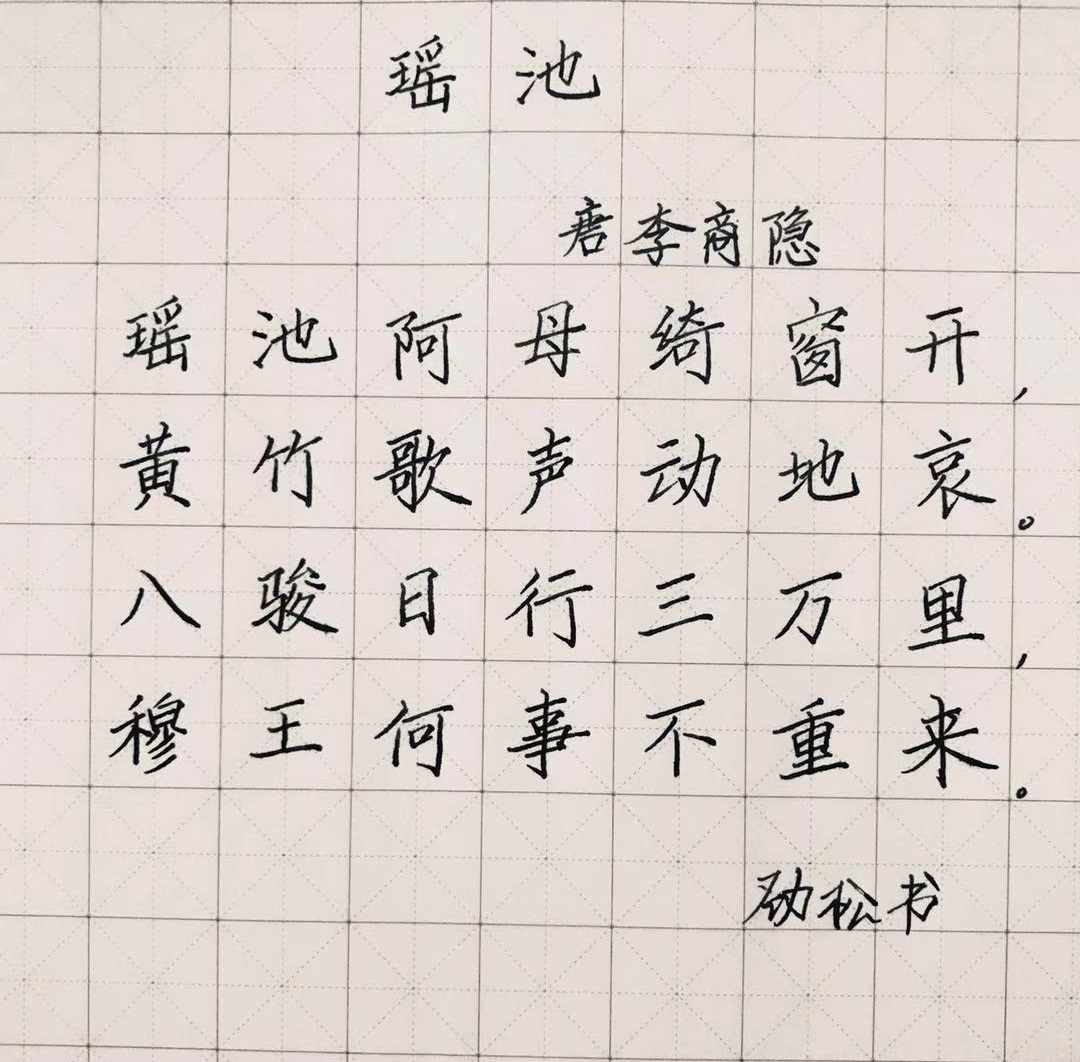 瑶池
唐李商隐
瑶池阿母绮窗开,
黄竹歌声动地哀。
八骏日行三万里,
穆王何事不重来。
劲松书